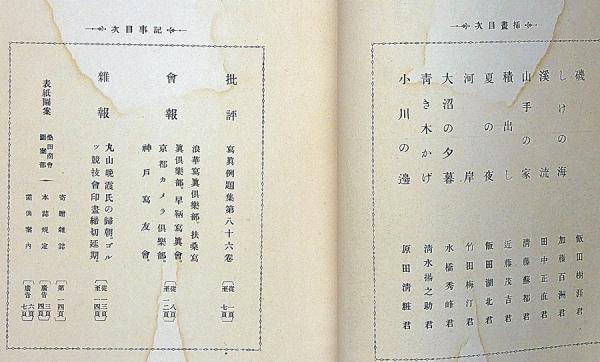 插畫目次
磯 飯田樹涯君
しけの海 加藤百洲君
溪流 田中正直君
山手の家 清藤蘇都君
積出し 近藤茂吉君
夏の夜 飯田湖北君
河岸 竹田梅汀君
大沼の夕暮 水橋秀峰君
靑き木かげ 淸水揚之助君
小川の邊 原田清粧君
記事目次
批評 寫眞例題集第八十六卷 〔從七頁〕
會報 浪華寫眞俱樂部、扶桑寫
眞俱樂部、早稲寫眞會、
京都カメラ俱樂部、
神戸寫友會、 〔從八頁至一二頁〕
雜報 丸山晩霞氏の歸朝、ゴル
ツ競技會印畫締切延期、 〔從一三頁至一四頁〕
表紙圖案 桑田商會圖案部
寄贈雜誌 〔第一四頁〕
本誌規定 〔廣告三頁四頁〕
需供案内 〔廣告六頁七頁〕